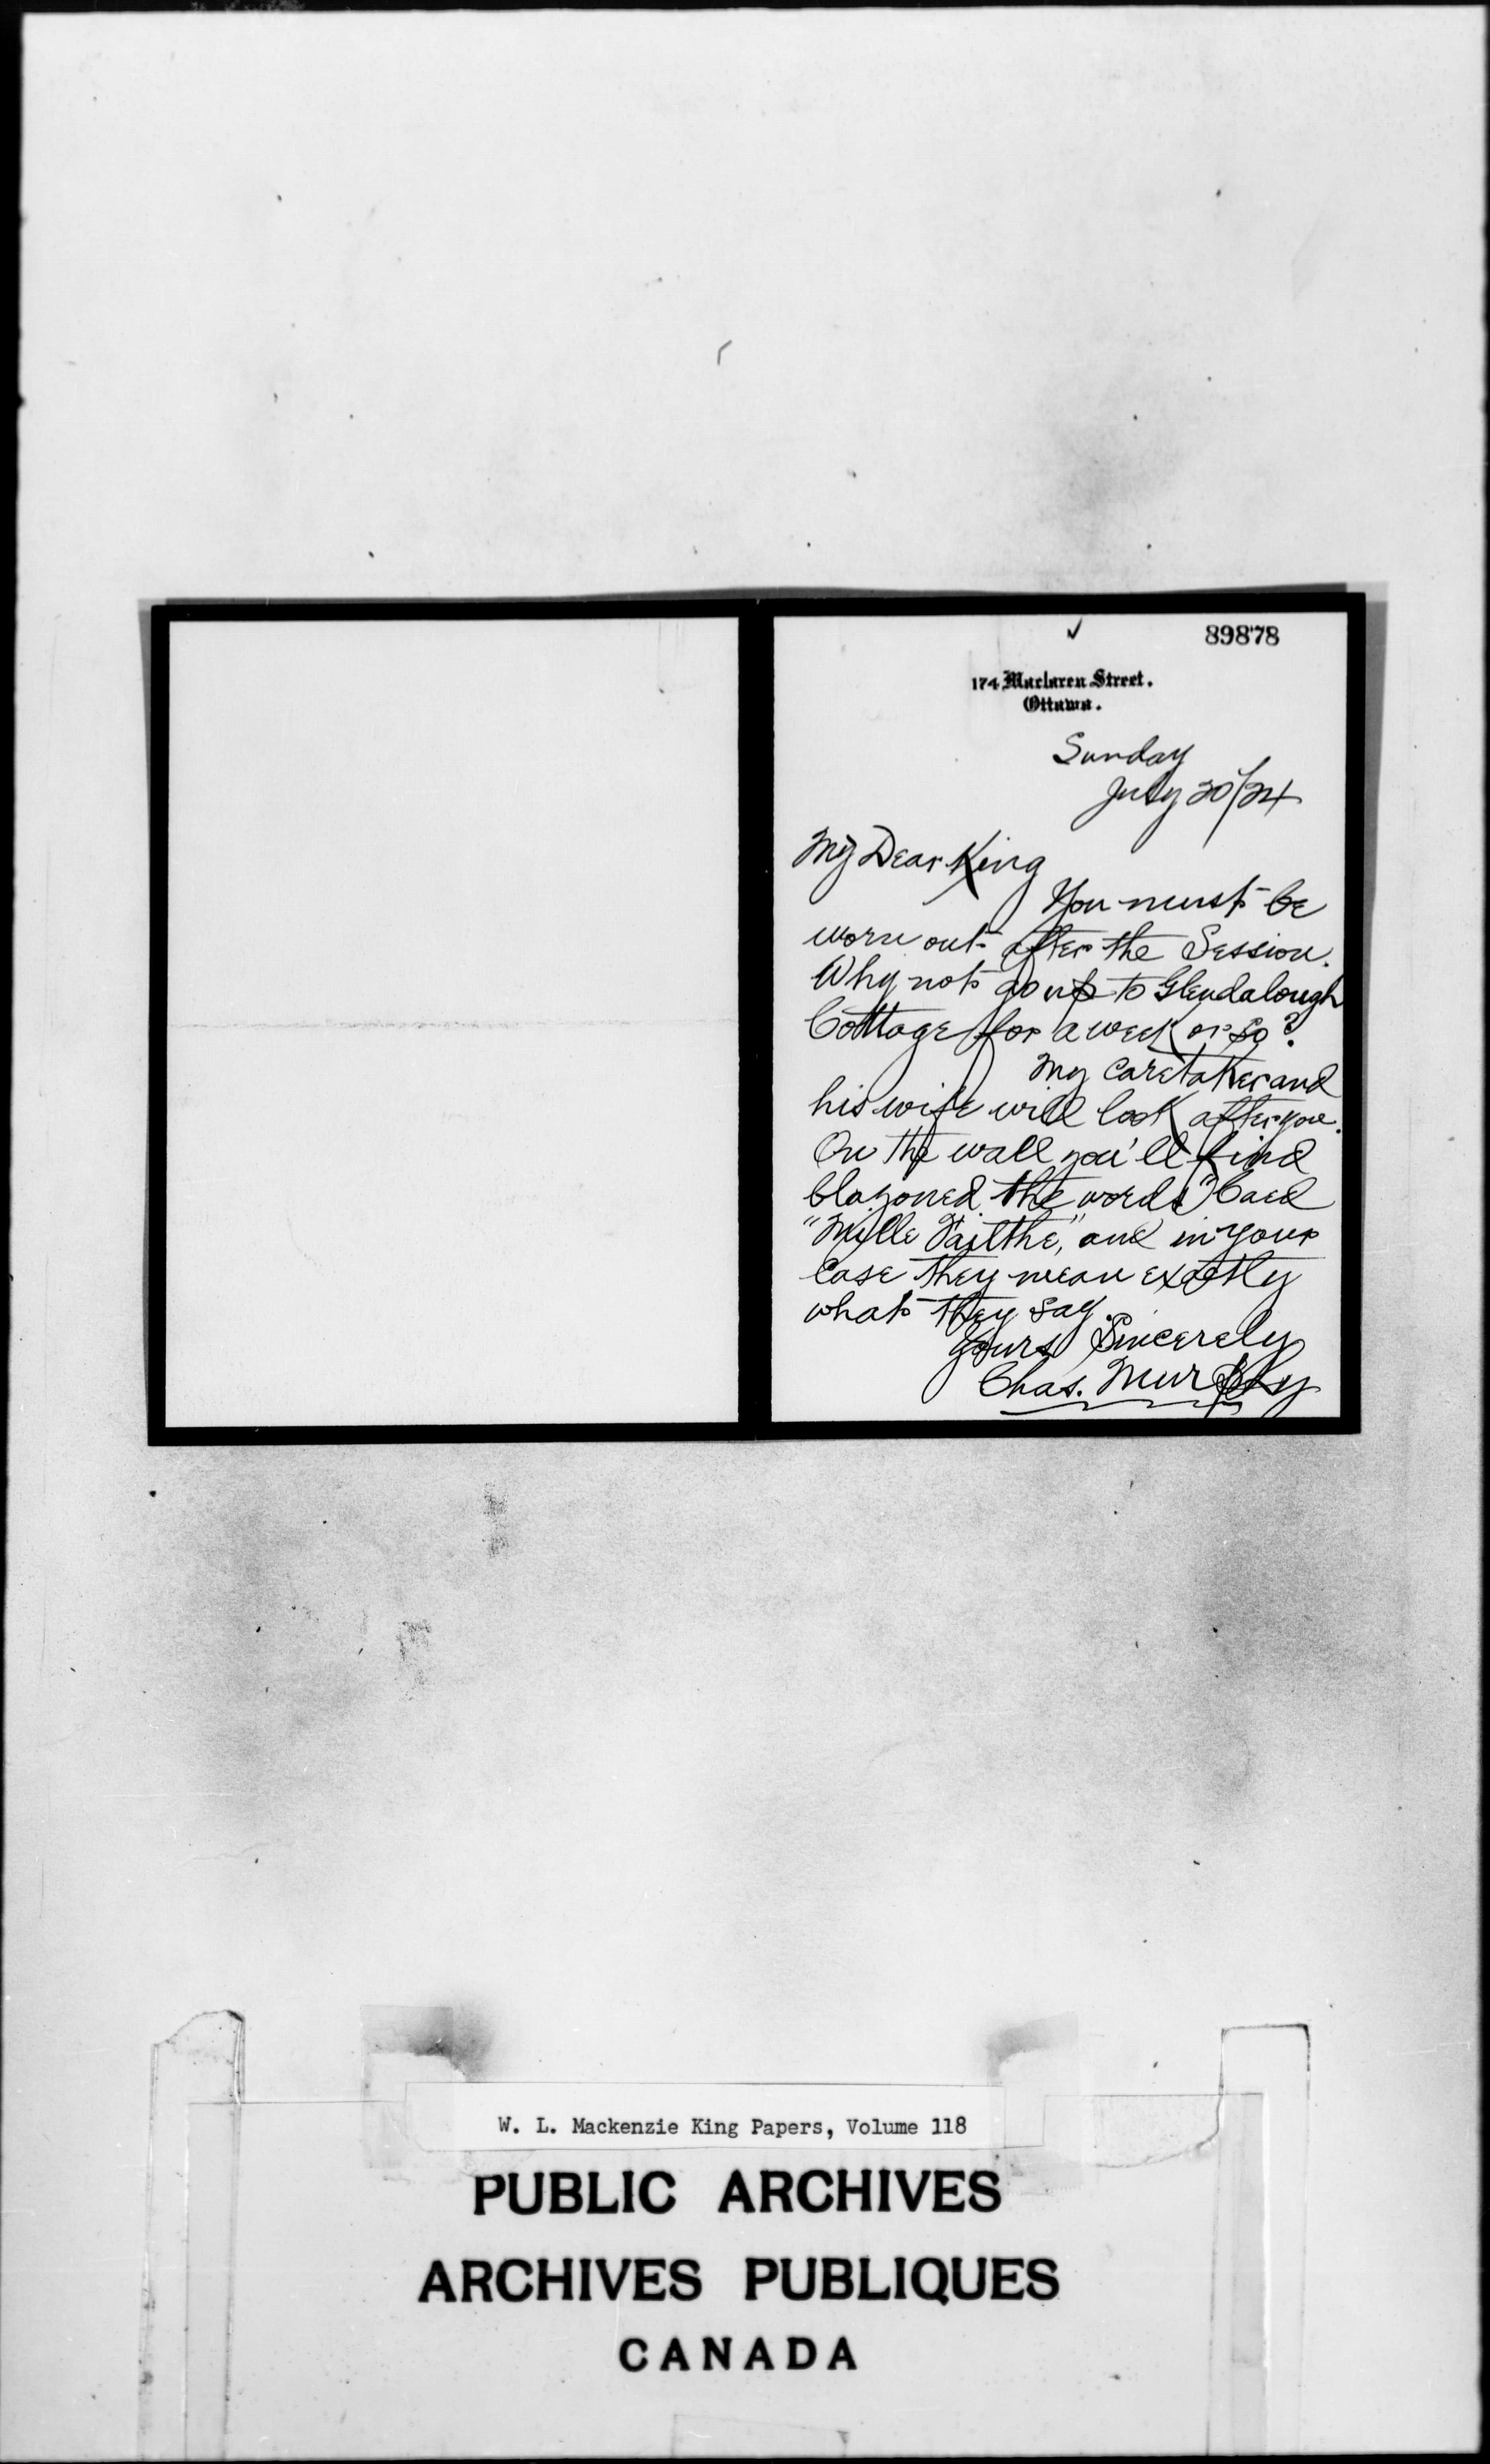 89878
174 Maclaren Street.
Ottawa.
Sunday
July 20/24
My Dear King
You must be
worn out after the Session.
Why not go up to Glendalough
Cottage for a week or so?
My caretaker and
his wife will look after you.
On the wall you'll find
blazoned the words "Caed
"Mille Failthe," and in your
case they mean exactly
what they say.
Yours Sincerely
Chas. Murphy
W. L. Mackenzie King Papers, Volume 118
PUBLIC ARCHIVES
ARCHIVES PUBLIQUES
CANADA